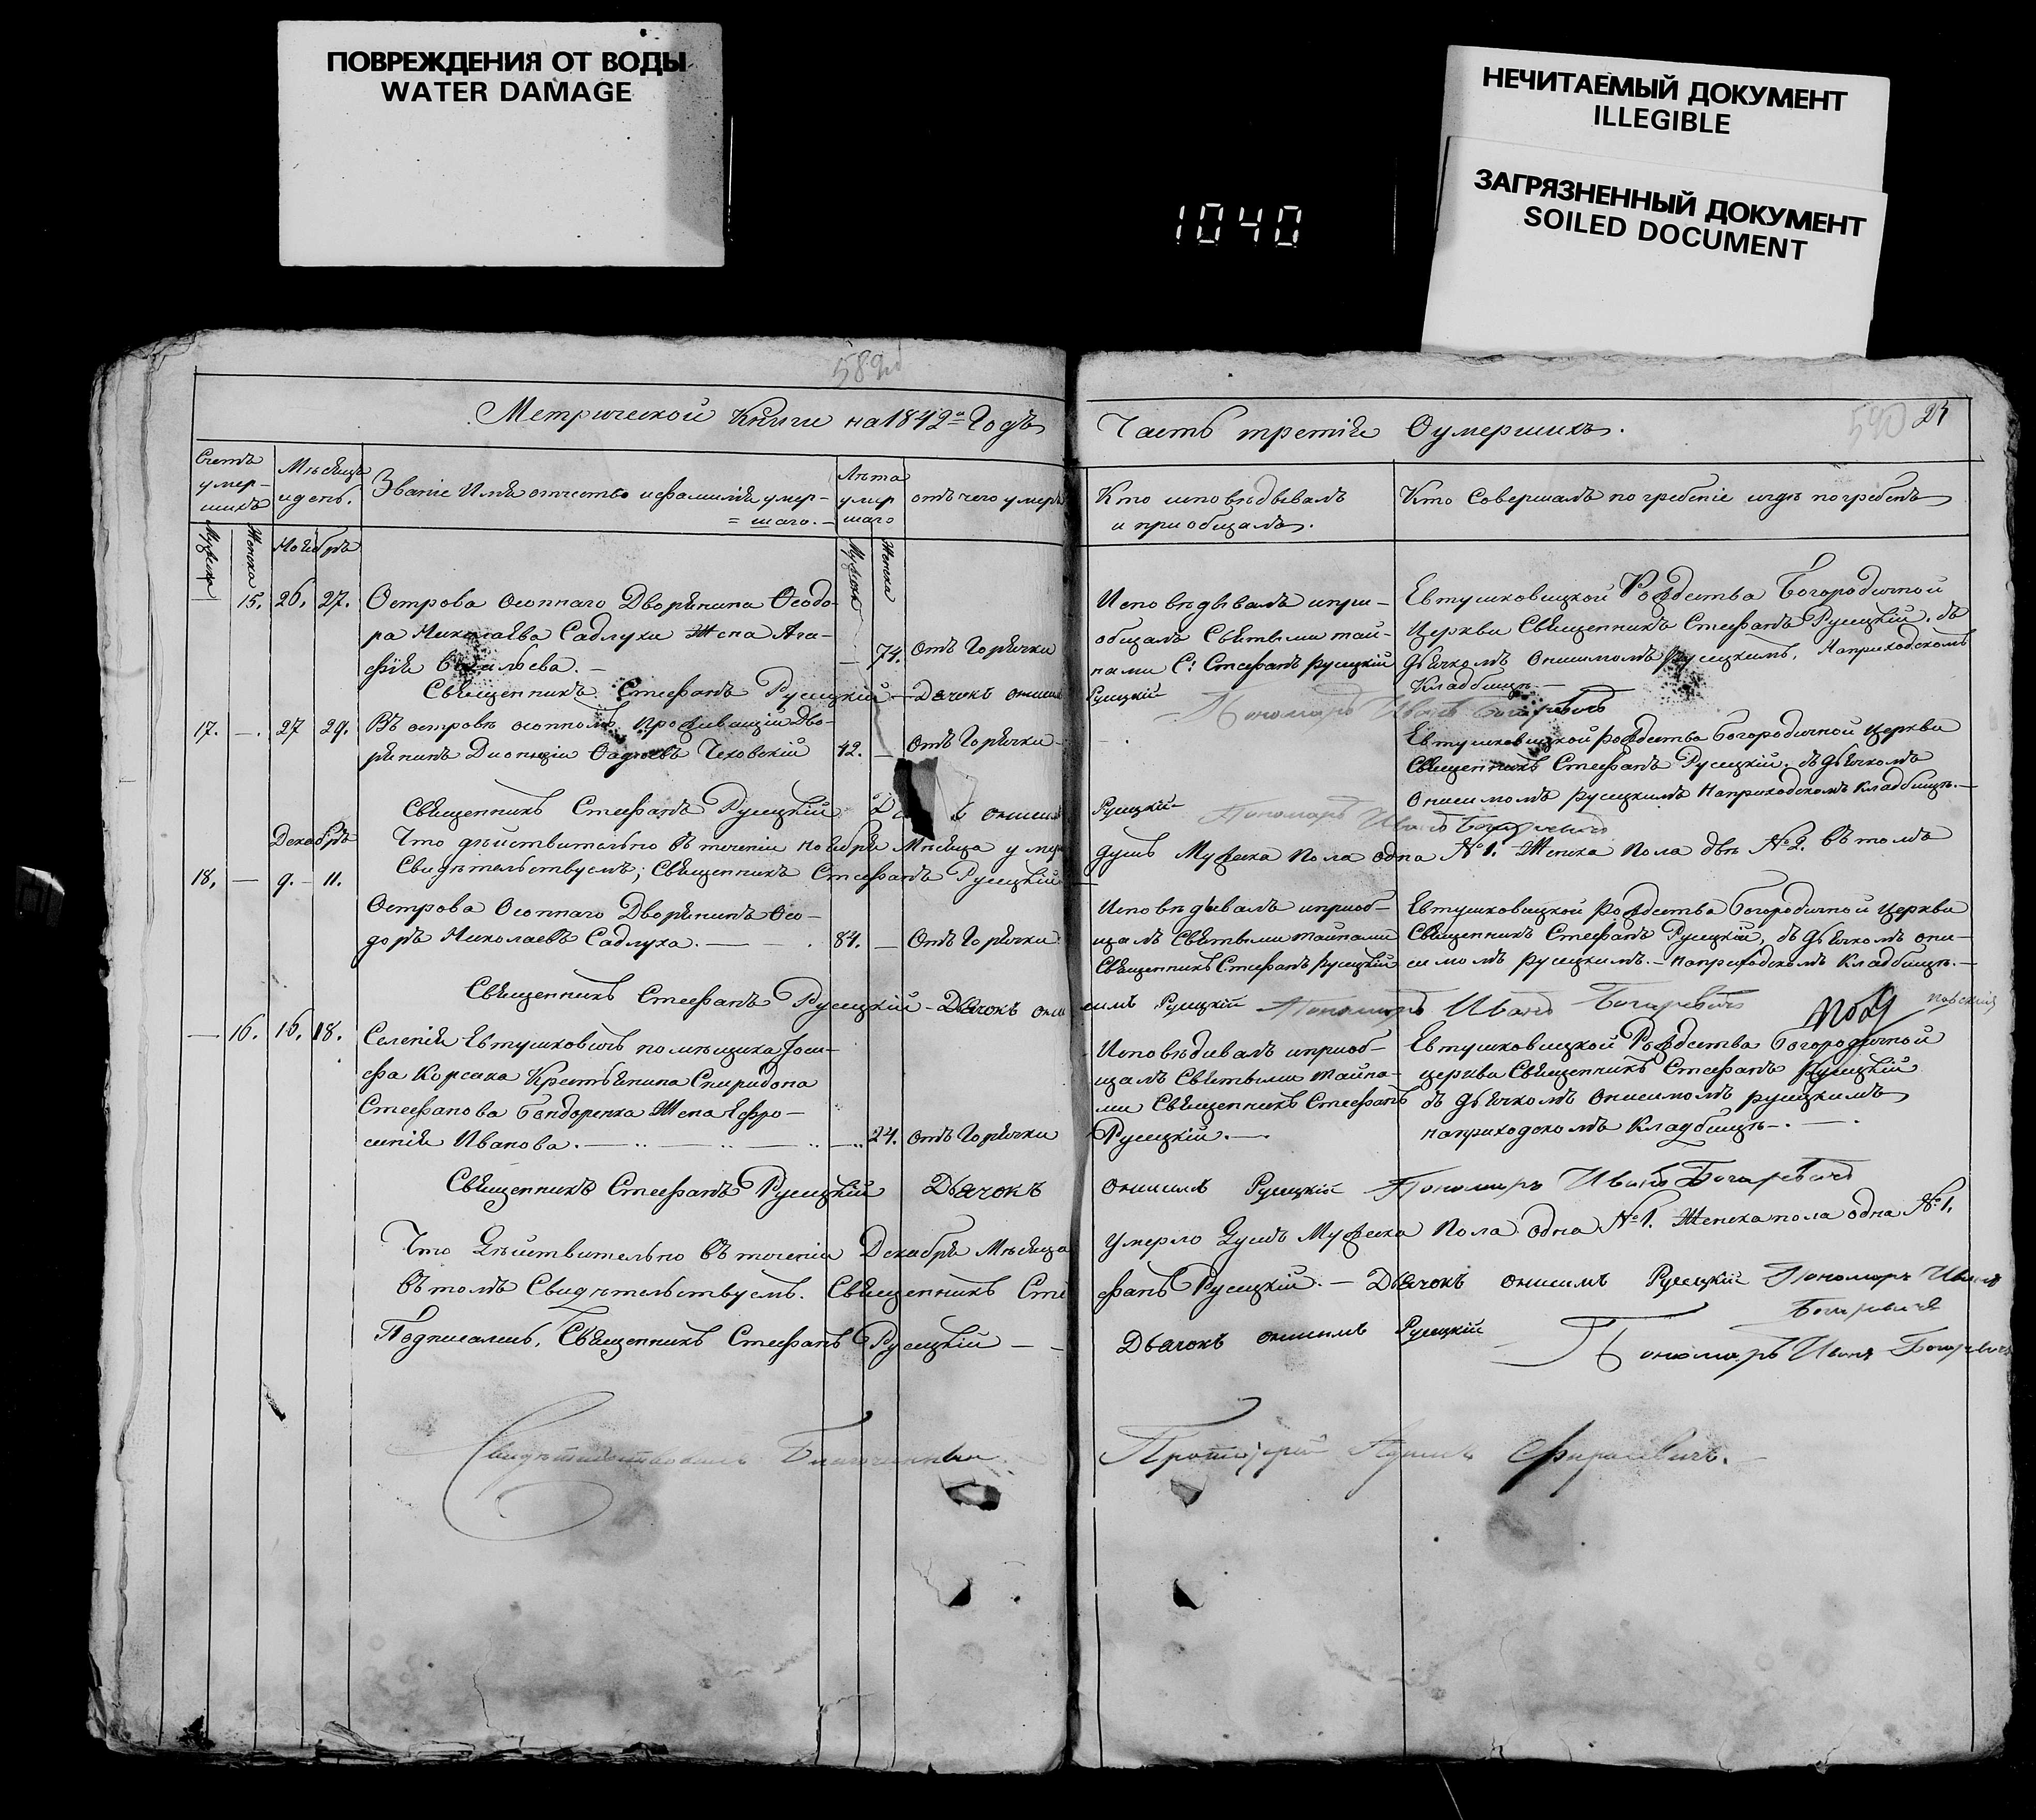 ПОВРЕЖДЕНИЯ ОТ ВОДЫ
WATER DAMAGE
НЕЧИТАЕМЫЙ ДОКУМЕНТ
ILLEGIBLE
ЗАГРЯЗНЕННЫЙ ДОКУМЕНТ
SOILED DOCUMENT
1040
Метрической Книги на 1842й Годъ
Счетъ умер-шихъ
Мѣсяцъ и день.
Званіе Имя отчество и фамилія умер-
=шаго.-
Лѣта умер шаго
отъ чего умеръ
Мужска
Женска
Ноября
Мужска
Женска
15. 26. 27. Острова Осоннаго Дворянина Ѳеодо-
ра Николаева Садлухи Жена Ага-
фія Васильева. — 74. Отъ Горячки
Священникъ Стефанъ Русецкій — Дьячокъ Онисим
17. —. 27 29. Въ островѣ осонномъ проживающій Дво-
рянинъ Дионизій Чеховскій 42. — Отъ Горячки
Священникъ Стефанъ Русецкій
Декабрь
Что дѣйствительно въ теченіи ноября Мѣсяца умер
Свидѣтельствуемъ; Священникъ Стефанъ Русецкій
18. — 9. 11. Острова Осоннаго Дворянинъ Ѳео-
доръ Николаевъ Садлуха. — 84. — Отъ Горячки
Священникъ Стефанъ Русецкій — Дьячокъ Они
— 16. 16. 18. Селенія Евтушковичъ помѣщика Іоси-
фа Корсака Крестьянина Спиридона
Стефанова Бондоренка Жена Ефро-
синія Иванова. — 24. Отъ Горячки
Священникъ Стефанъ Русецкій Дьячокъ
Что Дѣйствительно въ теченіи Декабря Мѣсяца
въ томъ Свидѣтельствуемъ. Священникъ Сте
Подписались, Священникъ Стефанъ Русецкій — —
Свидѣтельствовалъ Благочинный
Часть третія О умершихъ.
Кто исповѣдывалъ
и приобщалъ.
Кто Совершалъ погребеніе и гдѣ погребенъ
Исповѣдывалъ и при-
общалъ Святыми тай-
нами С: Стефанъ Русецкій
Евтушковицкой Рождества Богородичной
Церкви Священникъ Стефанъ Русецкій, съ
дьячкомъ Онисимомъ Русецкимъ, На приходскомъ
Кладбищѣ —
Русецкій Пономарь Иванъ Богаревичъ
Евтушковицкой Рождества Богородичной Церкви
Священникъ Стефанъ Русецкій, съ дьячкомъ
Онисимомъ Русецкимъ На приходскомъ Кладбищѣ.—
Русецкій Пономарь Иванъ Богаревичъ
душъ Мужеска Пола одна №1. Женска Пола двѣ №2. Въ томъ
Исповѣдывалъ и приоб-
щалъ Святыми Тайнами
Священникъ Стефанъ Русецкій
Евтушковицкой Рождества Богородичной Церкви
Священникъ Стефанъ Русецкій, съ дьячкомъ Они-
симомъ Русецкимъ.— На приходскомъ Кладбищѣ.—
симъ Русецкій Пономарь Иванъ Богаревичъ
Исповѣдывалъ и приоб-
щалъ Святыми Тайна-
ми Священникъ Стефанъ
Русецкій.—
Евтушковицкой Рождества Богородичной
церкви Священникъ Стефанъ Русецкій
съ дьячкомъ Онисимомъ Русецкимъ
на приходскомъ Кладбищѣ—.
Онисимъ Русецкій Пономарь Иванъ Богаревичъ
Умерло Душъ Мужеска Пола одна №1. Женска пола одна №1.
фанъ Русецкій.— Дьячокъ Онисимъ Русецкій Пономарь Иванъ
Богаревичъ
Дьячокъ Онисимъ Русецкій Пономарь Иванъ Богаревичъ
Протоіерей